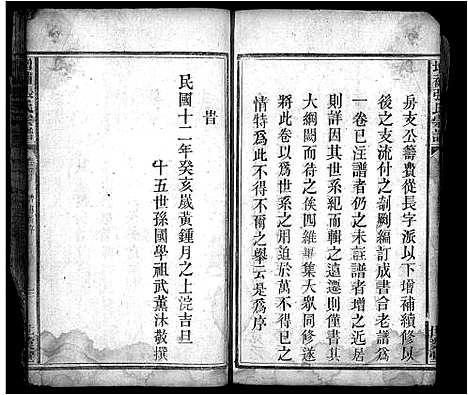 房支公籌費從長字派以下增補續修以
後之支流付之剞劂編訂成書合老譜為
一卷已注譜者仍之未註譜者增之近居
則詳因其世系紀而輯之遠遷則而存焉
大綱闕而待之俟四維畢集大眾同修遂
將此卷以為世系之用迫於萬不得已之
情特為此不得不爾之舉云是為序
旹
民國十二年癸亥歲黃鍾月之上浣吉旦
十五世孫國學祖武薰沐敬撰